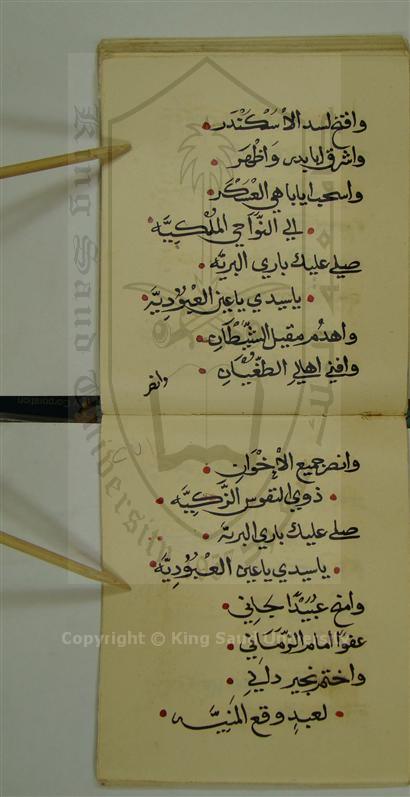 وافتح لسد الاسكندر
واشرق ايابدر واظهر
واسحب ايا باهي العسكر
الي النواحي الملكيه
صلي عليك باري البريه
ياسيدي ياعين العبوديه
واهدم مقيل الشيطان
وافني اهالي الطغيان
وانصر
وانصر جميع الاخوان
ذوي النفوس الزكيه
صلي عليك باري البريه
ياسيدي ياعين العبوديه
وامنح عبيدا جاني
عفوا امام الزماني
واختم بخير داني
لعبد وقع المنيه
Copyright © King Saud University
King Saud University
Corporation